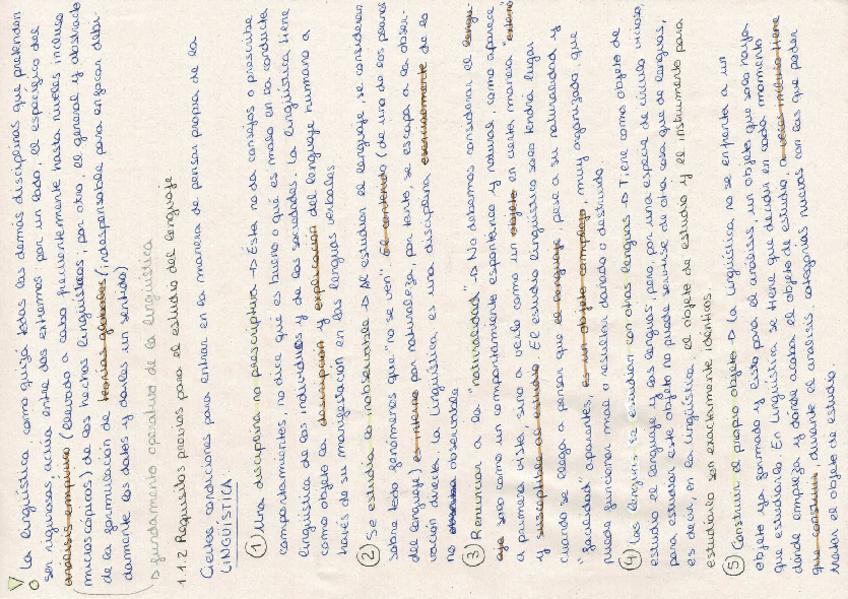 La lingüística como quizá todas las demás disciplinas que pretenden
ser rigurosas, actúa entre dos extremos: por un lado, el específico del
análisis empírico (llevado a cabo frecuentemente hasta niveles incluso
microscópicos) de los hechos lingüísticos; por otro, el general y abstracto
de la formulación de teorías globales (indispensable para enfocar debi-
damente los datos y darles un sentido)
fundamento operativo de la lingüística
1.1.2 Requisitos previos para el estudio del lenguaje
Ciertas condiciones para entrar en la manera de pensar propia de la
LINGUÍSTICA:
① Una disciplina no prescriptiva → Ésta no da consejos o prescribe
comportamientos, no dice que es bueno o qué es malo en la conducta
lingüística de los individuos y de las sociedades. La lingüística tiene
como objeto la descripción y explicación del lenguaje humano a
través de su manifestación en las lenguas verbales
② Se estudia lo inobservable → Al estudiar el lenguaje, se consideran
sobre todo fenómenos que "no se ven". El contenido (de uno de los planos
del lenguaje) es interno por naturaleza, por tanto, se escapa a la obser-
vación directa. La lingüística es una disciplina de lo
no observable
③ Renunciar a la "naturalidad" → No debemos considerar el lengu-
aje solo como un comportamiento espontáneo y natural, como aparece
a primera vista, sino a verlo como un objeto en cierta manera "externo"
y susceptible de estudio. El estudio lingüístico solo tendrá lugar
cuando se llega a pensar que el lenguaje, pese a su naturalidad y
"facilidad" aparentes, es un objeto complejo, muy organizado, que
puede funcionar mal o resultar dañado o destruido.
④ Las lenguas se estudian con otras lenguas → Tiene como objeto de
estudio el lenguaje y las lenguas, pero, por una especie de círculo vicioso,
para estudiar este objeto no puede servirse de otra cosa que de lenguas,
es decir, en la lingüística el objeto de estudio y el instrumento para
estudiarlo son exactamente idénticos.
⑤ Construir el propio objeto → La lingüística no se enfrenta a un
objeto ya formado y listo para el análisis, un objeto que solo haya
que estudiarlo. En Lingüística se tiene que decidir en cada momento
dónde empieza y dónde acaba el objeto de estudio, a veces incluso tiene
que construir, durante el análisis, categorías nuevas con las que poder
tratar el objeto de estudio.